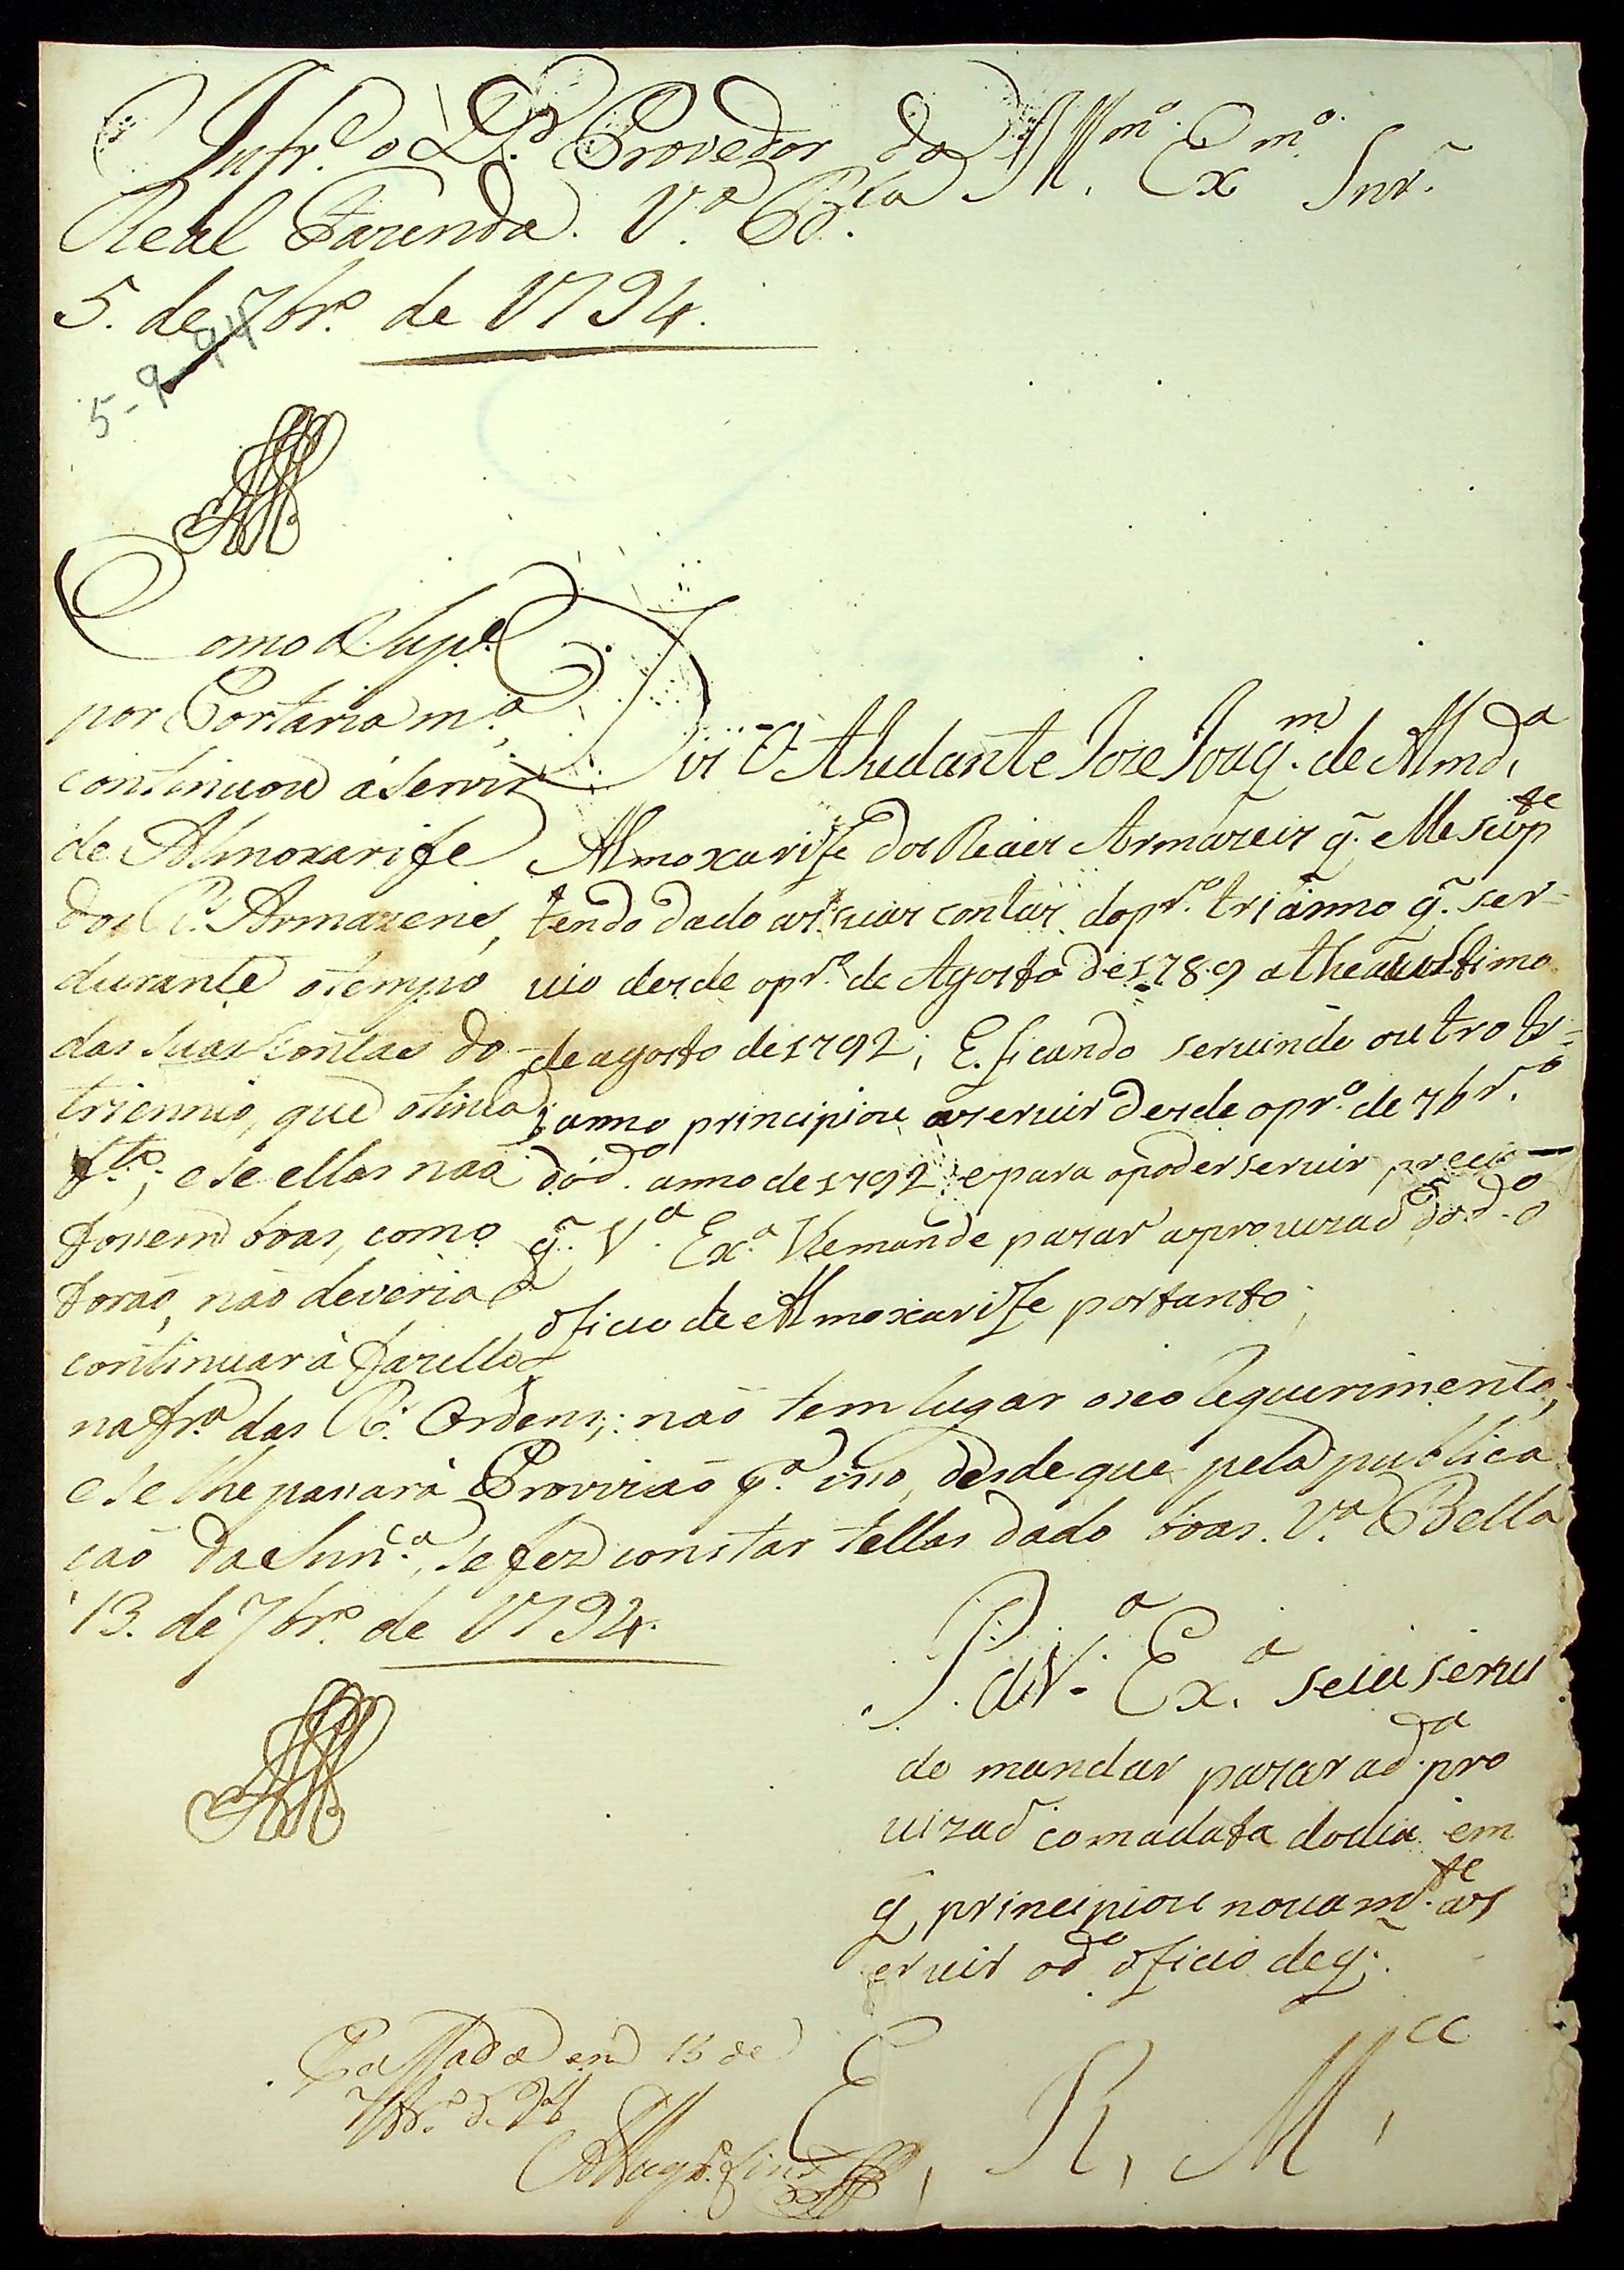 Infr.e o D.r Provedor da
Real Fazenda. V.a B.la
5. de 7br.o de 1794.
5-9-94
Ill.mo Ex.mo Snr.
Como o Sup.e
por Portaria m.a,
continuou á servir
de Almoxarife
dos R.s Armazens,
durante o tempo
das suas contas do
triennio, que tinha
f.to; e se ellas naõ
fossem boas, como
foraõ, naõ deveria
continuar à fazello
na fr.a das R.s Ordens; naõ tem lugar o seo Requerimento,
e se lhe passarà Provizaõ p.a isso, desde que pela publica
caõ da Sen.ca, se fez constar tellas dado boas. V.a Bella
13. de 7br.o de 1794.
Dis O Ahudante Joze Joaq.m de Almd.a
Almoxarife dos Reaes Armazeis q̃. elle sup.te
tendo dado as suas contas do pr.o trianno q̃. ser-
uio desde o pr.o de Agosto de 1789 athe ao ultimo
de agosto de 1792; E ficando seruindo outro tr-
ianno principiou a seruir desde o pr.o de 7br.o
do d.o anno de 1792 e para o poder seruir precisa
q̃. V.a Ex.a lhe mande pasar a prouizaõ do d.o
oficio de Almoxarife portanto
P. a V.a Ex.a seia serui
do mandar pasar a d.a pro
uizaõ com a data do dia em
q̃ principiou nouam.te a s
eruir o d.o oficio de q̃.
E. R. M.ce
Passada em 13 de
7br.o d. 94